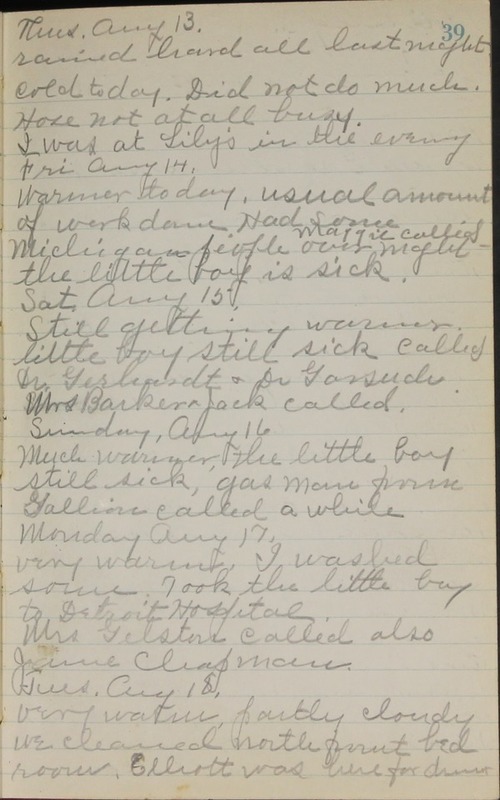 39
Thus. Aug 13.
rained hard all last night
cold today. Did not do much.
Hose not at all busy.
I was at Lily's in the evenng
Fri Aug 14.
Warmer today, usual amount
of work done Had some
Maggie called
Michigan people over night
the little boy is sick.
Sat. Aug 15,
Still getting warmer.
little boy still sick called
Dr. Gerhardt & Dr
Mrs Barker & Jack called.
Sunday, Aug 16
Much warmer, the little boy
still sick, gas man from
Gallion called a while
Monday Aug 17,
very warm. I washed
some. Took the little boy
to Detroit Hospital.
Mrs Gelston called also
Jenne Chapman.
Tues. Aug 18,
very warm, partly cloudy
we cleaned north front bed
room. Elliott was here for dinner